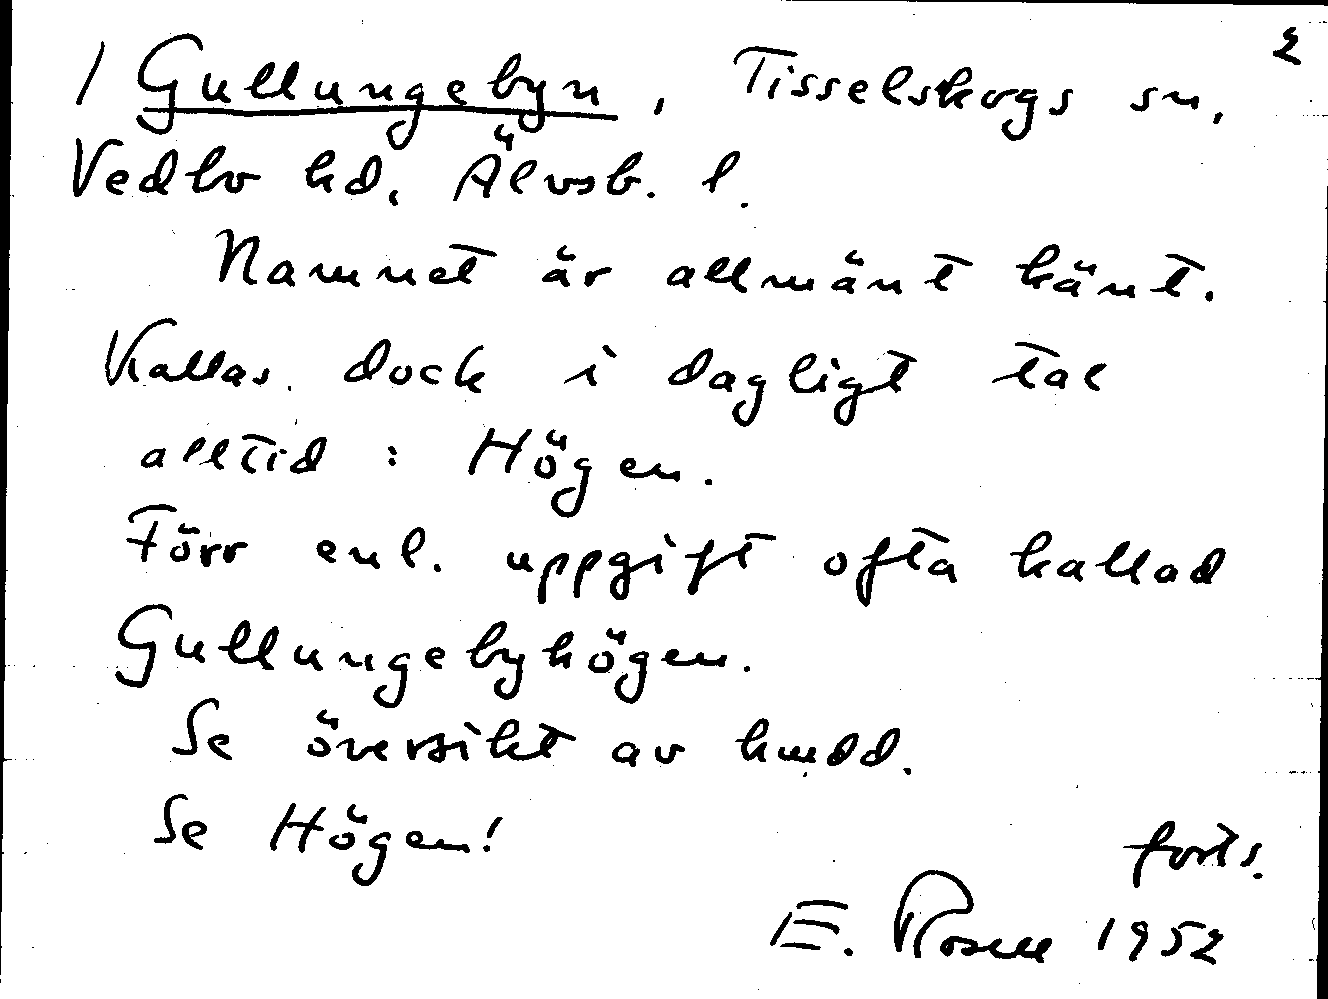 2
1 Gullungebyn, Tisselskogs sn,
Vedbo hd, Älvsb. l.
Namnet är allmänt känt.
Kallas dock i dagligt tal
alltid : Högen.
Förr enl. uppgift ofta kallad
Gullungebyhögen.
Se översikt av hmdd.
Se Högen!
forts.
E. Rosell 1952